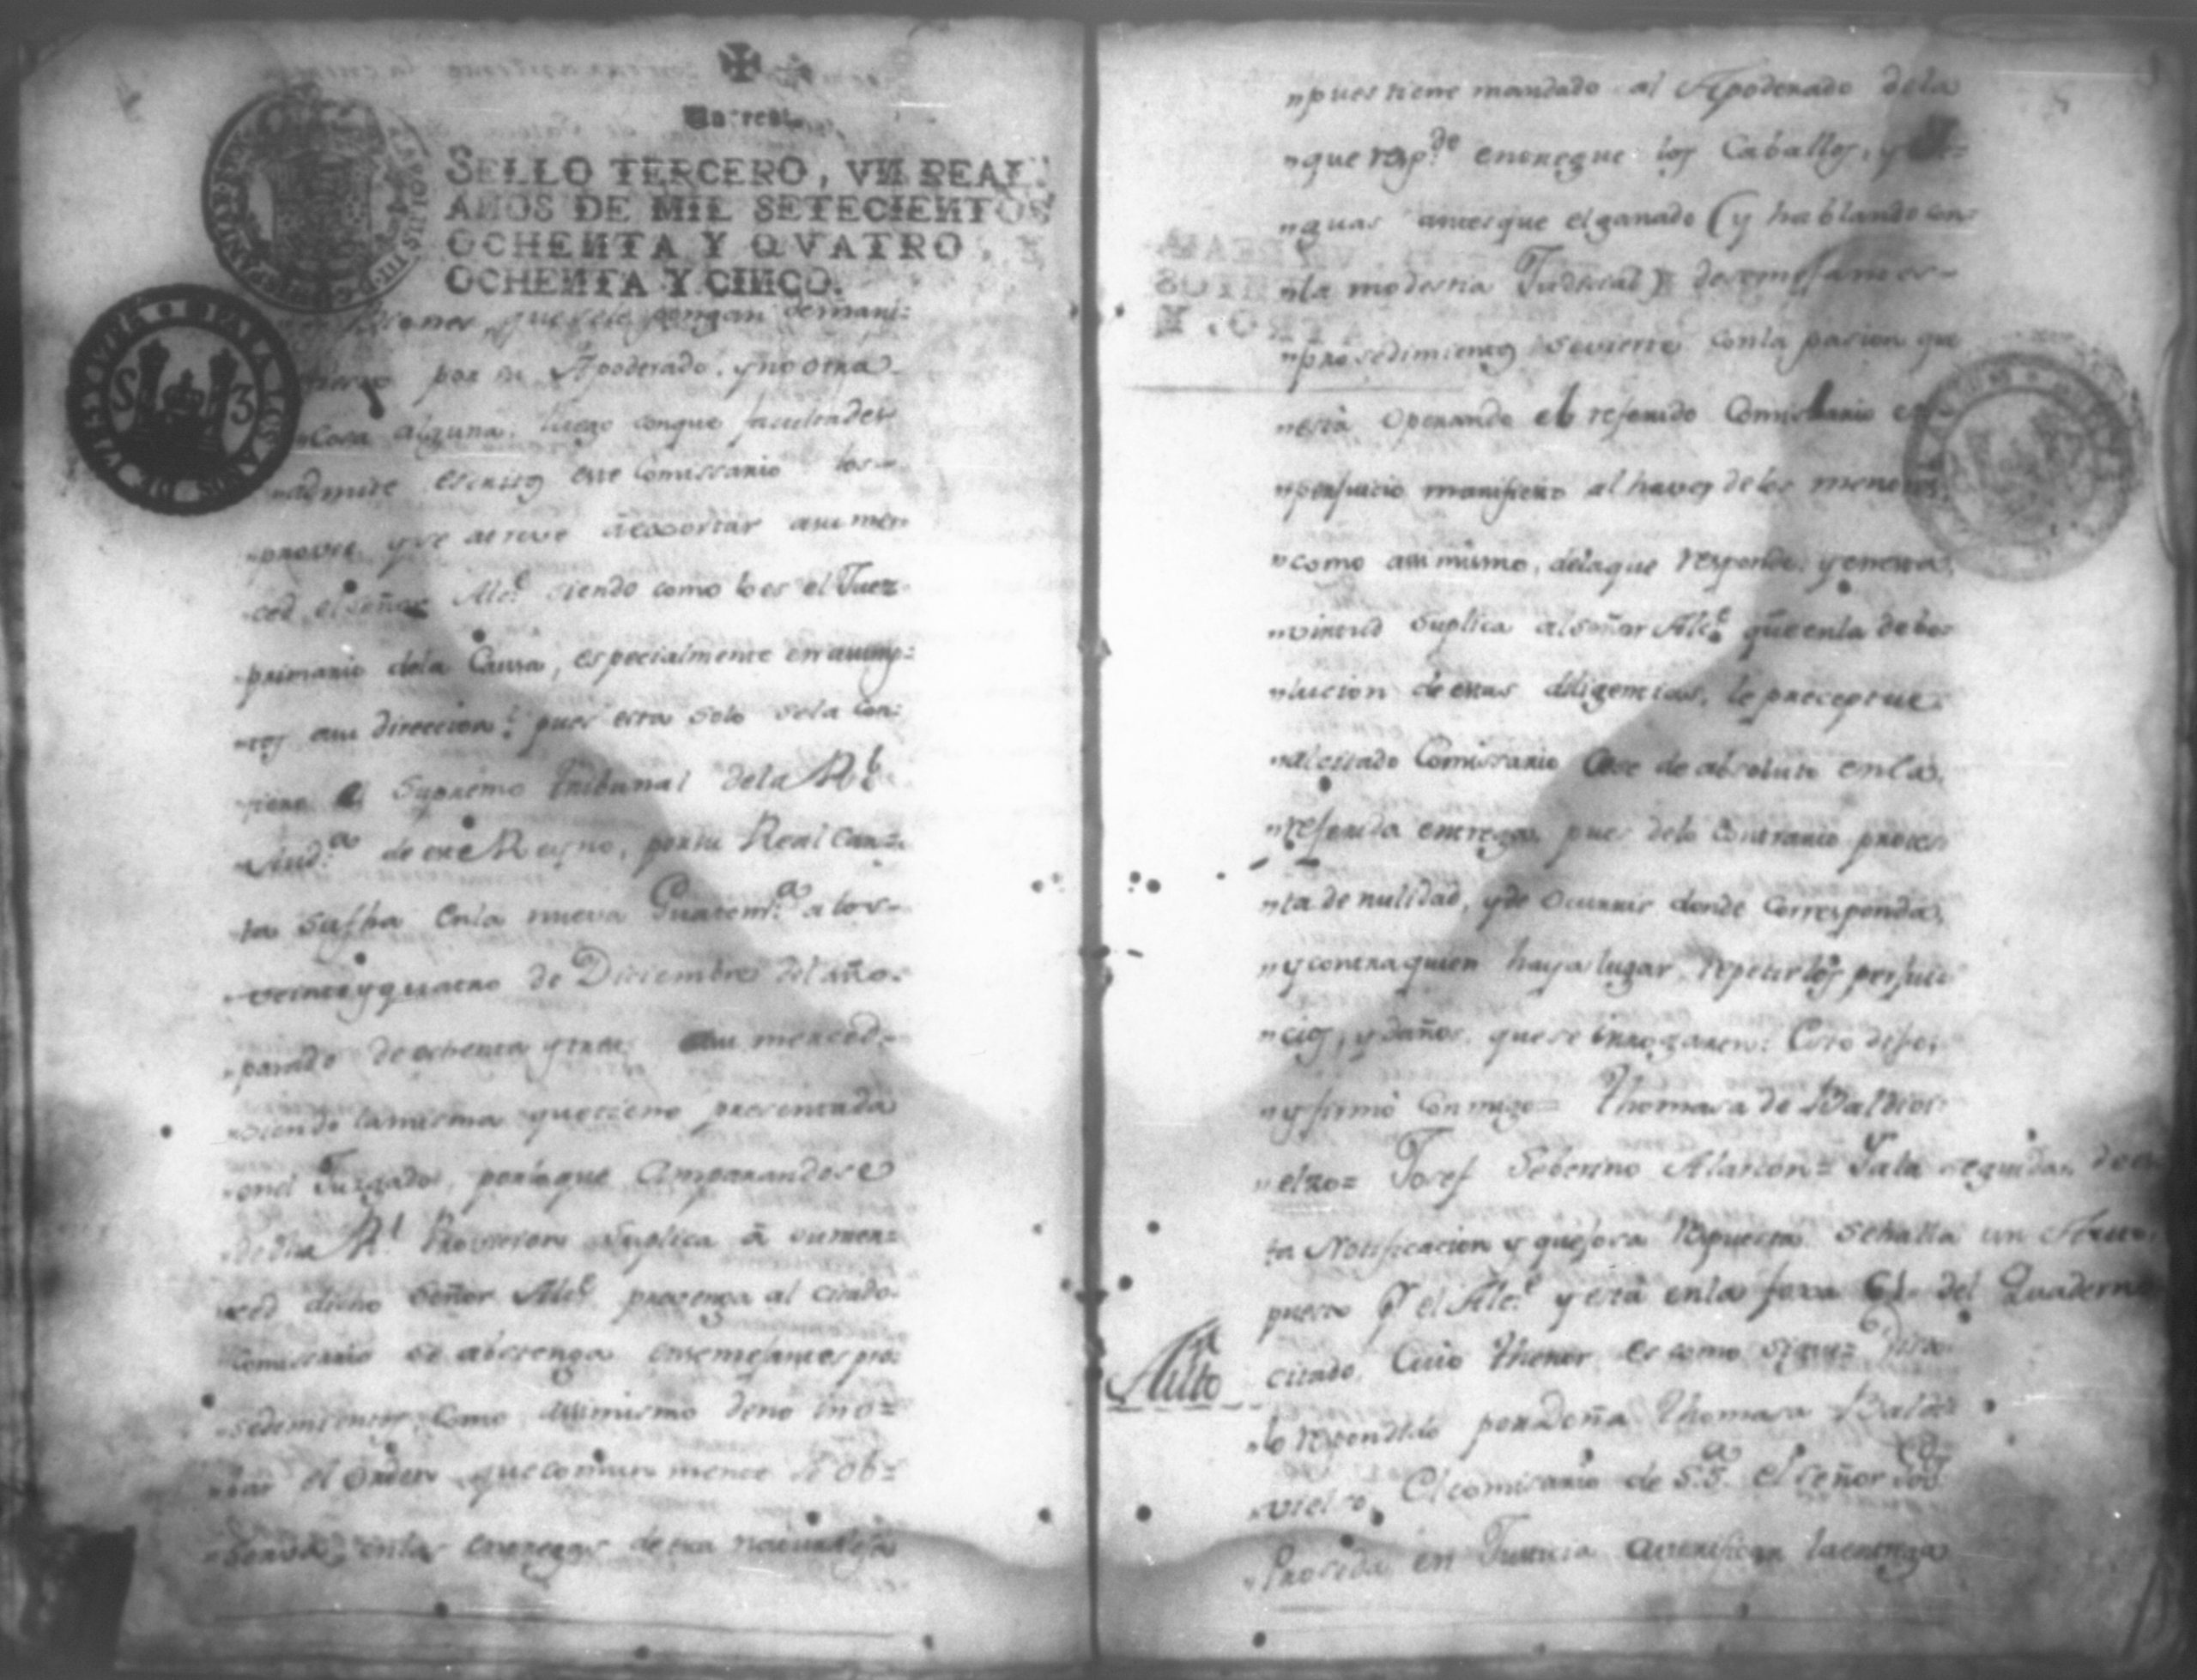 Un real.
SELLO TERCERO, VN REAL,
AÑOS DE MIL SETECIENTOS
OCHENTA Y QVATRO, Y
OCHENTA Y CINCO.
que se le pongan de mani=
por su Apoderado, y no otra
"cosa alguna, luego conque facultades
"admite escritos este Comissario los
"provee, y se atreve à exortar a su mer
"ced, el señor Alc.e siendo como lo es el Juez
"primario dela Causa, especialmente en asump=
"tos a su direccion? pues esta solo se la con=
"tiene el Supremo Tribunal dela R.l
"Aud.a de este Reyno, por su Real Car=
"ta su fha en la nueva Guatem.a a los
"veinte y quatro de Diciembre del año
"pasado de ochenta y tres a su merced
"siendo la misma que tiene presentada
"en el Juzgado, por lo que amparandose
"de dha R.l Provision suplica à su mer=
"ced dicho señor Alc.e prevenga al citado
"Comissario se abstenga en semejantes pro=
"sedimientos, como assimismo de no ino=
"bar el orden que comun mente se ob=
"serva, en las entregas de esta naturaleza
"pues tiene mandado al Apoderado dela
"que resp.de entregue los Caballos, y
"guas antes que el ganado (y hablando con
"la modestia Judicial) de semejantes
"prosedimientos se vierte con la pasion que
"està operando el referido Comissario en
"perjuicio manifiesto al haver de los menores
"como assi mismo, dela que responde, y en esta
"virtud suplica al señor Alc.e que en la debo
"lucion de estas diligencias, le preceptue
"al citado Comissario Cese de absoluto en la
"referida entrega, pues de lo contrario protes
"ta de nulidad, y de ocurrir donde corresponda,
"y contra quien haya lugar, repetir los perjui
"cios, y daños, que se irrogaren: Esto dijo,
"y firmò conmigo= Thomasa de Baldivi
"elzo= Josef Seberino Alarcon=
ta Notificacion y quejosa respuesta se halla un Auto
puesto p.r el Alc.e y està en la foxa 61 del Quaderno
Auto
citado, Cuio thenor es como sigue=
"lo respondido por doña Thomasa Baldi
"vielso, El comisario de S.S.a el señor
"Proseda en Justicia a verificar la entrega